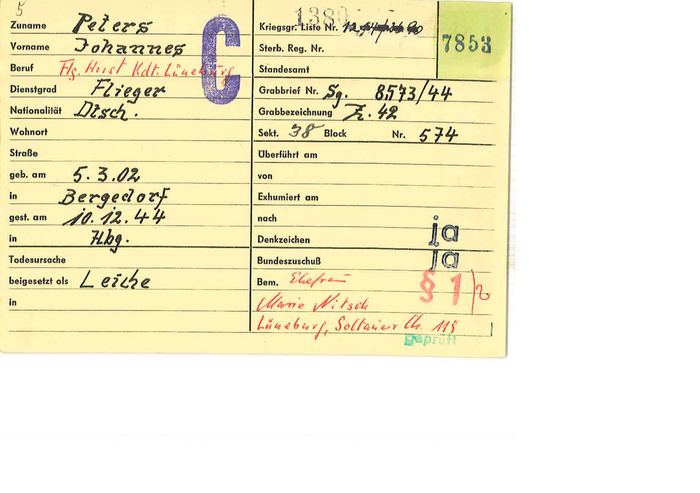 5
1380
7853
C
Zuname Peters
Vorname Johannes
Beruf Flg. Horst Kdt. Lüneburg
Dienstgrad Flieger
Nationalität Dtsch.
Wohnort
Straße
geb. am 5.3.02
in Bergedorf
gest. am 10.12.44
in Hbg.
Todesursache
beigesetzt als Leiche
in
Kriegsgr. Liste Nr.
Sterb. Reg. Nr.
Standesamt
Grabbrief Nr. Sg. 8573/44
Grabbezeichnung Z. 42
Sekt. 38 Block Nr. 574
Überführt am
von
Exhumiert am
nach
Denkzeichen ja
Bundeszuschuß ja
Bem. Ehefrau § 1/2
Marie Nitsch
Lüneburg, Soltauer Str. 115
geprüft